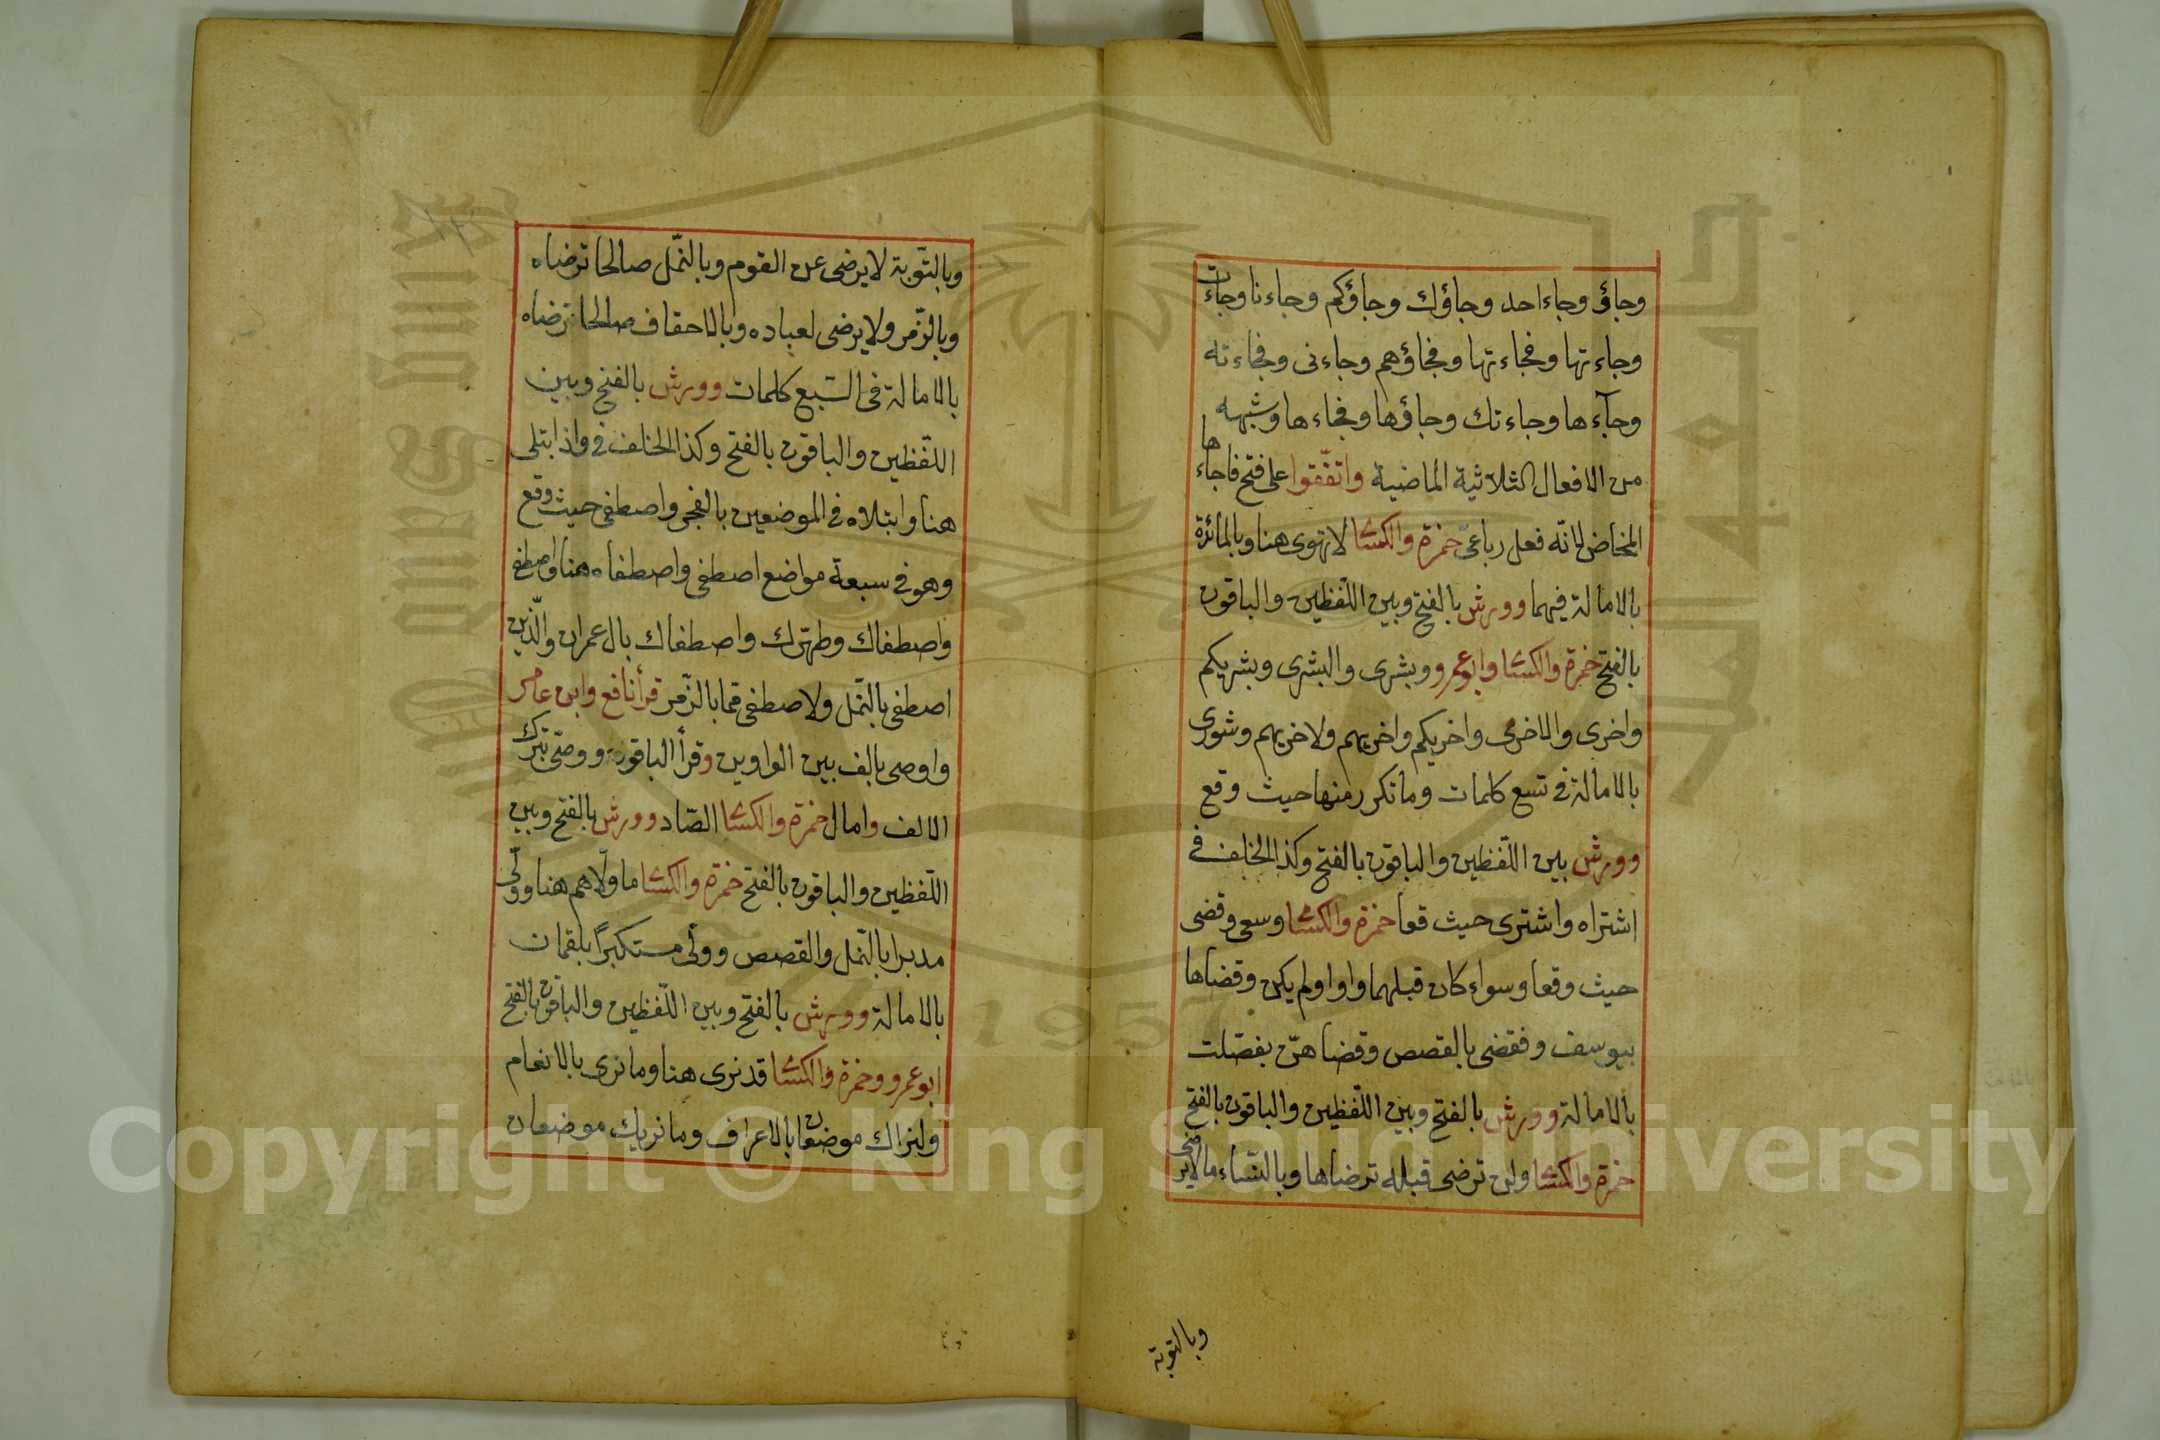 وجاؤ وجاء احد وجاؤك وجاؤكم وجاءنا وجاءت
وجاءتها وفجاءتها وفجاؤهم وجاءنى وفجاءته
وجآءها وجاءتك وجاؤها وفجاءها وشبهه
من الافعال الثلاثية الماضية واتّفقوا على فتح فاجاءها
المخاض لانّه فعل رباعىّ حمزة والكسا لا تهوى هنا وبالمائدة
بالامالة فيهما وورش بالفتح وبين اللّفظين والباقون
بالفتح حمزة والكسا وابوعمرو وبشرى والبشرى وبشريكم
واخرى والاخرى واخريكم واخريهم ولاخريهم وشورى
بالامالة فى تسع كلمات وما تكرر منها حيث وقع
وورش بين اللّفظين والباقون بالفتح وكذا الخلف فى
اشتراه واشترى حيث قعا حمزة والكسا وسعى وقضى
حيث وقعا وسواء كان قبلهما واو اولم يكن وقضاها
بيوسف وفقضى بالقصص وقضاهنّ بفصّلت
بالامالة وورش بالفتح وبين اللّفظين والباقون بالفتح
حمزة والكسا ولن ترضى قبله ترضاها وبالنّساء ما لا يرضى
وبالتوبة
وبالتّوبة لا يرضى عن القوم وبالنّمل صالحا ترضاه
وبالزّمر ولا يرضى لعباده وبالاحقاف صالحا ترضاه
بالامالة فى السّبع كلمات وورش بالفتح وبين
اللّفظين والباقون بالفتح وكذا الخلف فى واذ ابتلى
هنا وابتلاه فى الموضعين بالفجر واصطفى حيث وقع
وهو فى سبعة مواضع اصطفى واصطفاه هنا واصطفى
واصطفاك وطهّرك واصطفاك بال عمران والّذين
اصطفى بالنّمل ولاصطفى مما بالزّمر قرأ نافع وابن عامر
واوصى بالف بين الواوين وقرأ الباقون ووصّى بترك
الالف وامال حمزة والكسا الصّاد وورش بالفتح وبين
اللّفظين والباقون بالفتح حمزة والكسا ما ولّاهم هنا وولّى
مدبرا بالنّمل والقصص وولّى مستكبرًا بلقمان
بالامالة وورش بالفتح وبين اللّفظين والباقون بالفتح
ابوعمرو وحمزة والكسا قد نرى هنا وما نرى بالانعام
ولنراك موضعان بالاعراف وما نريك موضعان
Copyright © King Saud University
1957